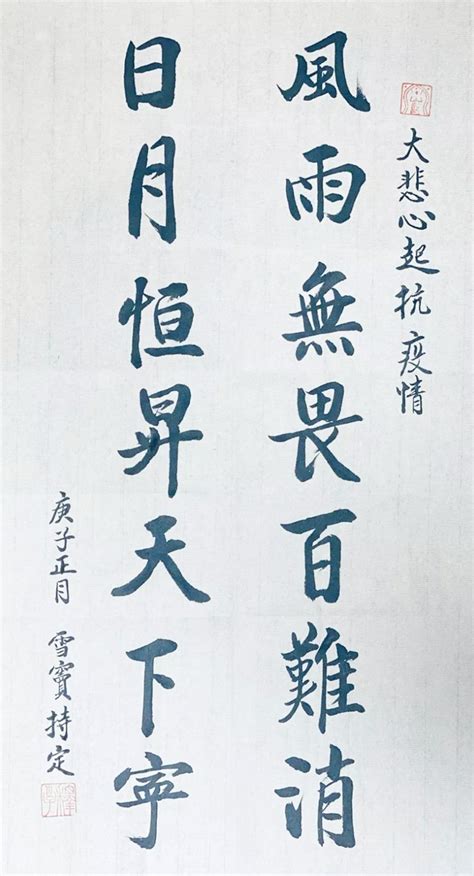 大悲心起抗疫情
風雨無畏百難消
日月恒昇天下寧
庚子正月 雪竇持定